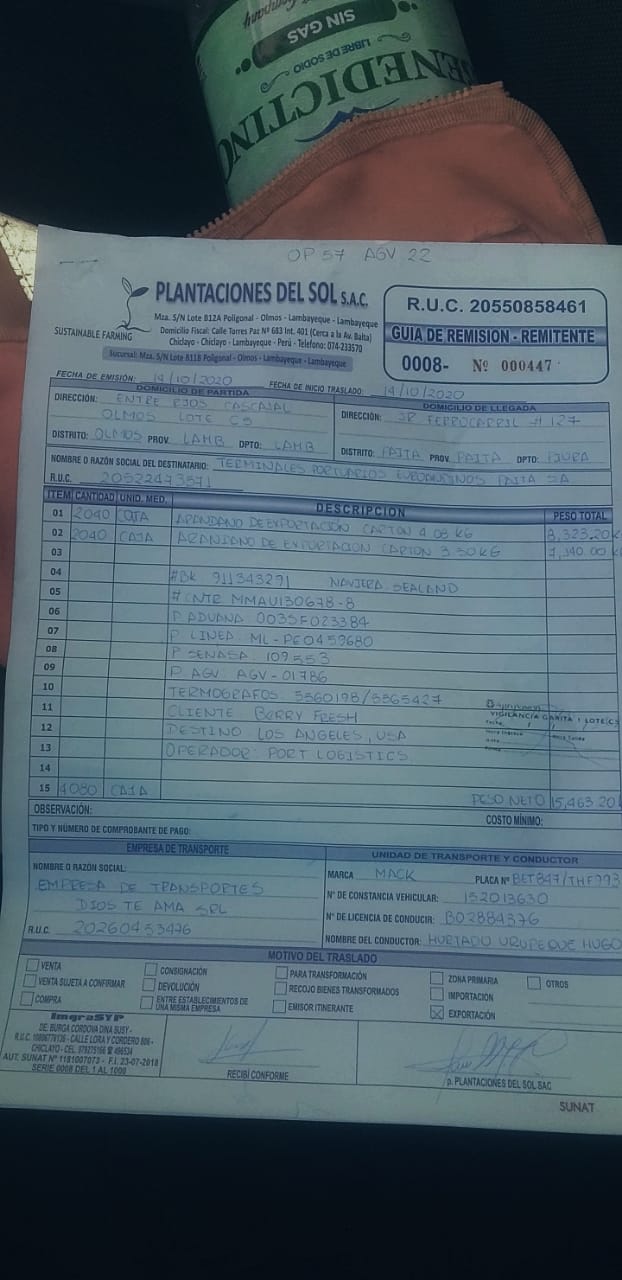 Company
SIN GAS
LIBRE DE SODIO
BENEDICTINO
OP 57 AGV 22
PLANTACIONES DEL SOL S.A.C.
SUSTAINABLE FARMING
Mza. S/N Lote B12A Poligonal - Olmos - Lambayeque - Lambayeque
Domicilio Fiscal: Calle Torres Paz Nº 683 Int. 401 (Cerca a la Av. Balta)
Chiclayo - Chiclayo - Lambayeque - Perú - Telefono: 074-233570
Sucursal: Mza. S/N Lote 811B Poligonal - Olmos - Lambayeque - Lambayeque
R.U.C. 20550858461
GUIA DE REMISION - REMITENTE
0008- Nº 000447
FECHA DE EMISIÓN: 14/10/2020 FECHA DE INICIO TRASLADO: 14/10/2020
DOMICILIO DE PARTIDA
DIRECCIÓN: ENTRE RIOS CASCAJAL
OLMOS LOTE C5
DISTRITO: OLMOS PROV. LAMB DPTO: LAMB
DOMICILIO DE LLEGADA
DIRECCIÓN: JR FERROCARRIL # 127
DISTRITO: PAITA PROV. PAITA DPTO: PIURA
NOMBRE O RAZÓN SOCIAL DEL DESTINATARIO: TERMINALES PORTUARIOS EUROANDINOS PAITA SA
R.U.C. 20522473571
ITEM CANTIDAD UNID. MED. DESCRIPCION PESO TOTAL
01 2040 CAJA ARANDANO DE EXPORTACIÓN CARTON 4.08 KG 8,323.20 K
02 2040 CAJA ARANDANO DE EXPORTACION CARTON 3.50 KG 7,140.00 K
03
04 #BK 911343291 NAVIERA SEALAND
05 # CNTR MMAU130678-8
06 P ADUANA 0035F023384
07 P LINEA ML-PE0459680
08 P SENASA 109553
09 P. AGV. AGV-01786
10 TERMOGRAFOS: 5560198/5565427
11 CLIENTE BERRY FRESH
12 DESTINO LOS ANGELES, USA
13 OPERADOR: PORT LOGISTICS
VIGILANCIA GARITA 1 LOTE(CS
14
15 4080 CAJA PESO NETO 15,463.20
OBSERVACIÓN:
COSTO MÍNIMO:
TIPO Y NÚMERO DE COMPROBANTE DE PAGO:
EMPRESA DE TRANSPORTE
NOMBRE O RAZÓN SOCIAL:
EMPRESA DE TRANSPORTES
DIOS TE AMA SRL
R.U.C. 20260453476
UNIDAD DE TRANSPORTE Y CONDUCTOR
MARCA MACK PLACA Nº BET847/THF993
Nº DE CONSTANCIA VEHICULAR: 152013630
Nº DE LICENCIA DE CONDUCIR: B02884376
NOMBRE DEL CONDUCTOR: HURTADO URUPEQUE HUGO
MOTIVO DEL TRASLADO
VENTA
VENTA SUJETA A CONFIRMAR
COMPRA
CONSIGNACIÓN
DEVOLUCIÓN
ENTRE ESTABLECIMIENTOS DE
UNA MISMA EMPRESA
PARA TRANSFORMACIÓN
RECOJO BIENES TRANSFORMADOS
EMISOR ITINERANTE
ZONA PRIMARIA
IMPORTACIÓN
EXPORTACIÓN
OTROS
ImgraSYP
DE: BURGA CORDOVA DINA SUSY -
R.U.C. 10806776136 - CALLE LORA Y CORDERO 806 -
CHICLAYO - CEL. 979275166 496534
AUT. SUNAT Nº 1181007073 - F.I. 23-07-2018
SERIE 0008 DEL 1 AL 1000
RECIBÍ CONFORME
p. PLANTACIONES DEL SOL SAC
SUNAT